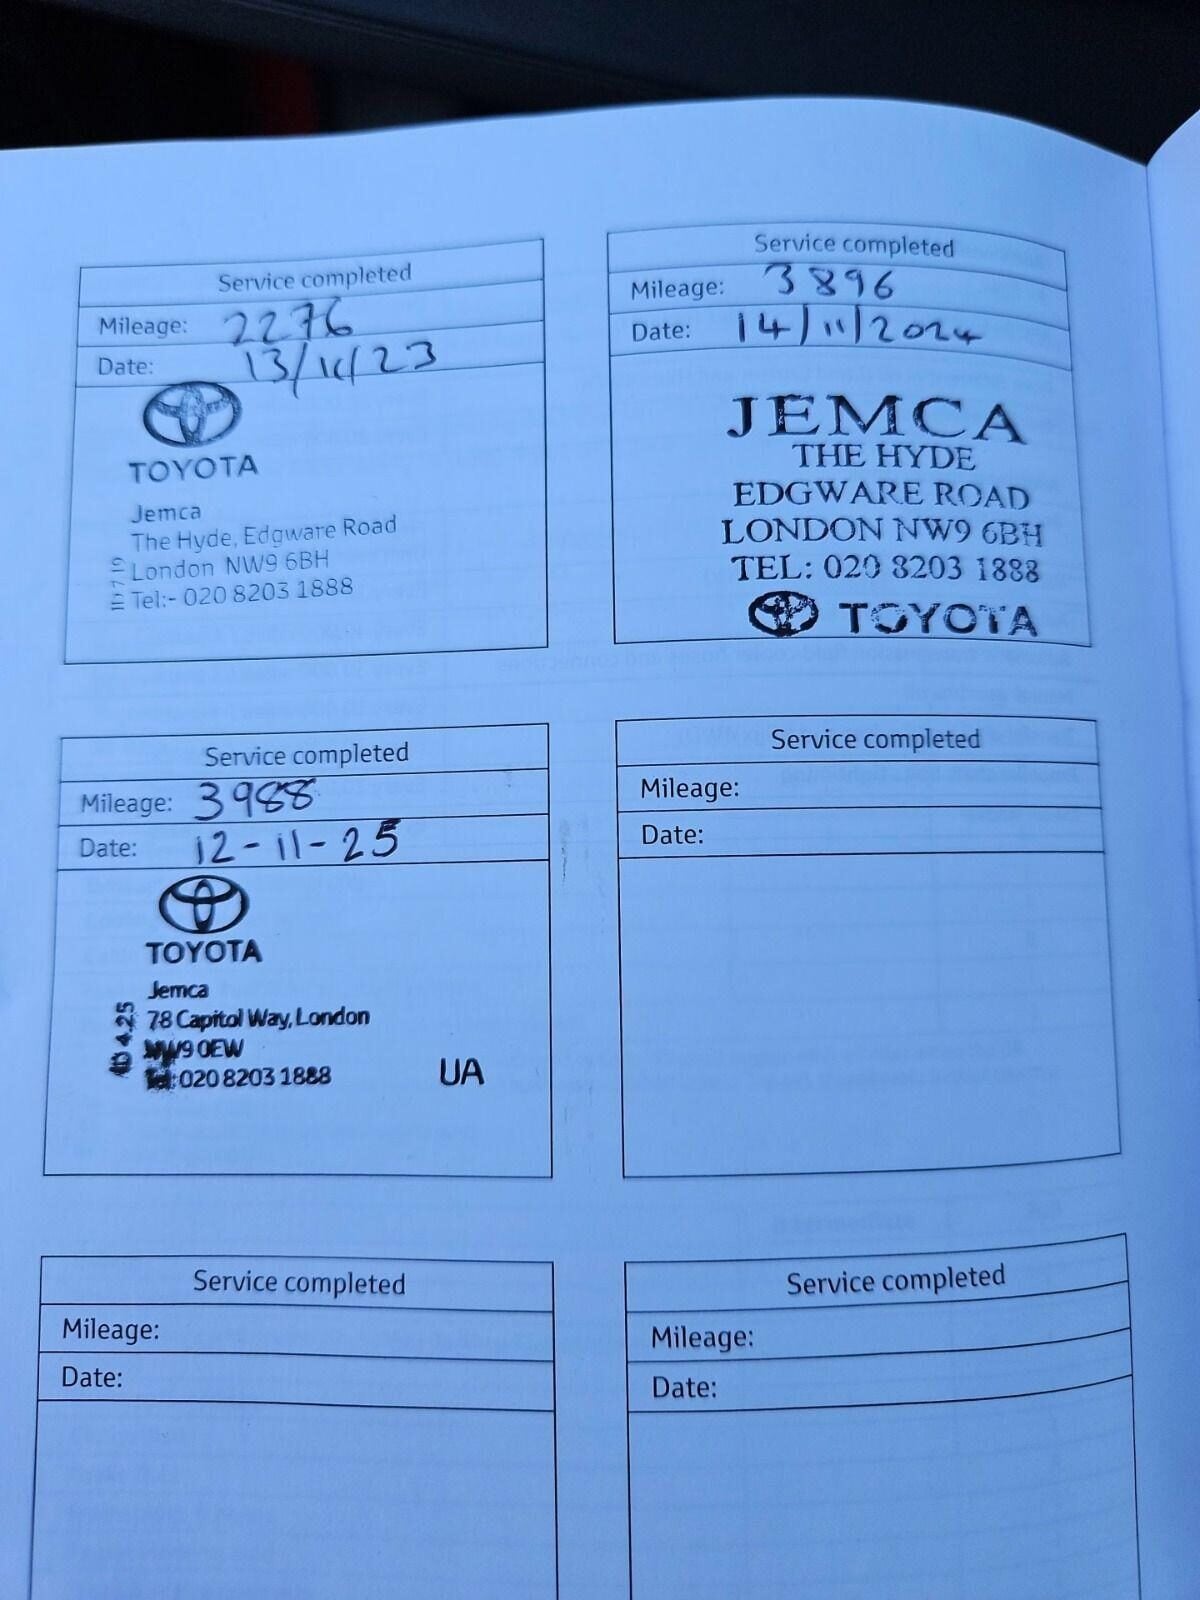 Service completed
Mileage: 2276
Date: 13/11/23
TOYOTA
Jemca
The Hyde, Edgware Road
London NW9 6BH
Tel:- 020 8203 1888
Service completed
Mileage: 3896
Date: 14/11/2024
JEMCA
THE HYDE
EDGWARE ROAD
LONDON NW9 6BH
TEL: 020 8203 1888
TOYOTA
Service completed
Mileage: 3988
Date: 12-11-25
TOYOTA
Jemca
78 Capitol Way, London
NW9 0EW
Tel: 020 8203 1888
UA
4.25
Service completed
Mileage:
Date:
Service completed
Mileage:
Date:
Service completed
Mileage:
Date: